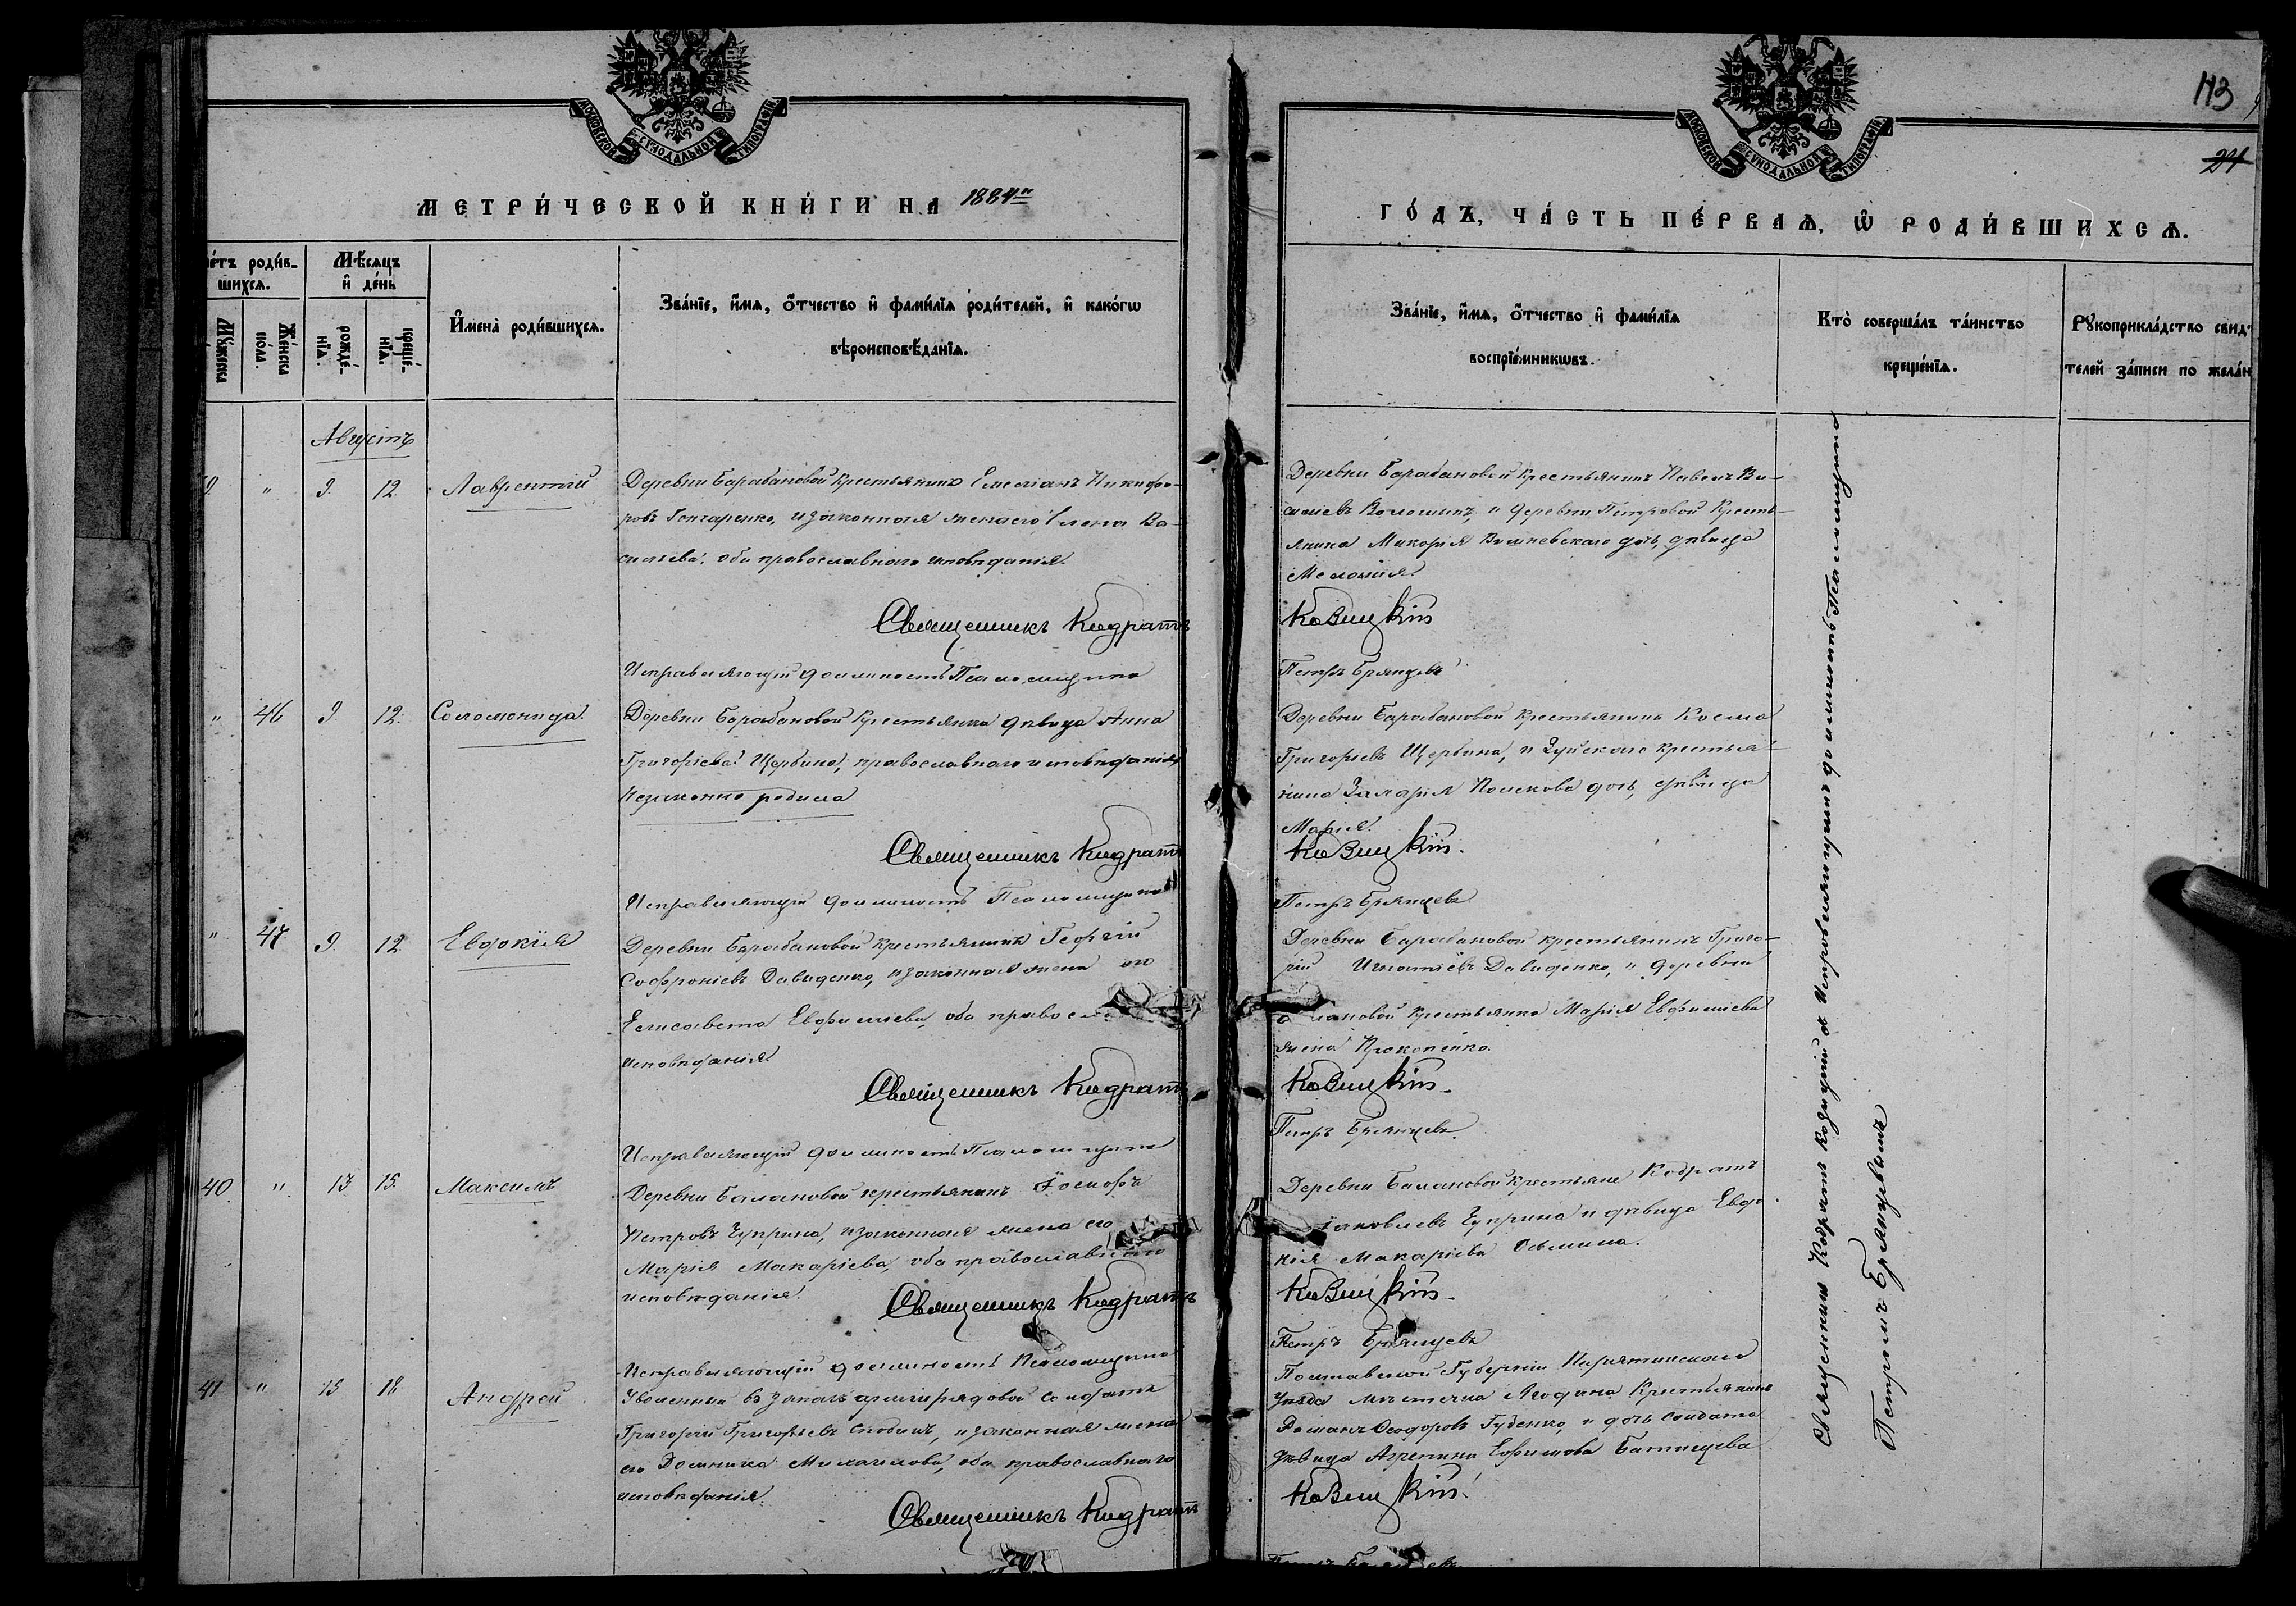 113
24
МОСКОВСКОЙ СѴНОДАЛЬНОЙ ТИПОГРАФІИ
МОСКОВСКОЙ СѴНОДАЛЬНОЙ ТИПОГРАФІИ
МЕТРИ́ЧЕСКОЙ КНИ́ГИ НА 1884й
ГО́ДЪ, ЧА́СТЬ ПЕ́РВАѦ, Ѡ҆ РОДИ́ВШИХСѦ.
роди́в-
шихсѧ.
Мѣ́сѧцъ
и҆ де́нь
Мꙋ́жеска
Же́нска
по́ла.
рожде́-
нїѧ.
креще́-
нїѧ.
И҆мена̀ роди́вшихсѧ.
Зва́нїе, и҆́мѧ, ѻ҆́тчество и҆ фами́лїѧ роди́телей, и҆ како́гѡ
вѣроисповѣ́данїѧ.
Зва́нїе, и҆́мѧ, ѻ҆́тчество и҆ фами́лїѧ
воспрїе́мникѡвъ.
Кто̀ соверша́лъ та́инство
креще́нїѧ.
Рꙋкоприкла́дство свид
телей за́писи по жела́н
Августъ
" 9. 12. Лаврентій
Деревни Барабановой крестьянинъ Емеліанъ Никифо-
ровъ Гончаренко, и законная жена его Елена Ва-
сильева, оба православнаго исповѣданія.
Священникъ Кодратъ
Исправляющій должность Псаломщика
Деревни Барабановой крестьянинъ Павелъ Ва-
сильевъ Волошинъ, и деревни Петровой кресть-
янина Макарія Вишневскаго дочь, дѣвица
Меланія.
Козицкій
Петръ Брянцевъ
" 46 9. 12. Соломонида.
Деревни Барабановой Крестьянка дѣвица Анна
Григоріева Щербина, православнаго исповѣданія,
незаконно родила
Священникъ Кодратъ
Исправляющій должность Псаломщика
Деревни Барабановой крестьянинъ Косма
Григоріевъ Щербина, и Зуйскаго крестья-
нина Захарія Полякова дочь, дѣвица
Марія.
Козицкій.
Петръ Брянцевъ
" 47 9. 12. Евдокія
Деревни Барабановой крестьянинъ Георгій
Софроніевъ Давиденко, и законная жена его
Елисавета Евфиміева, оба правосл
исповѣданія.
Священникъ Кодратъ
Исправляющій должность Псаломщика
Деревни Барабановой крестьянинъ Григо-
рій Игнатіевъ Давиденко, и деревни
лановой крестьянка Марія Евфиміева
жена Прокопенко.
Козицкій.
Петръ Брянцевъ.
40. " 13 15. Максимъ
Деревни Балановой крестьянинъ Іосифъ
Петровъ Чуприна, и законная жена его
Марія Макаріева, оба православнаго
исповѣданія.
Священникъ Кодратъ
Исправляющій должность Псаломщика
Деревни Балановой крестьяне Кодратъ
Іаковлевъ Чуприна и дѣвица Евдо-
кія Макаріева
Козицкій.
Петръ Брянцевъ
41 " 15 18 Андрей
Уволенный въ запасъ арміи рядовой солдатъ
Григорій Григорьевъ и законная жена
его Домника Михаилова, оба православнаго
исповѣданія.
Священникъ Кодратъ
Полтавской Губерніи Пирятинскаго
Уѣзда мѣстечка Яготина Крестьянинъ
Романъ Ѳеодоровъ Губенко, и дочь солдата
дѣвица Агрепина Ефимова
Козицкій.
Священникъ Кодратъ Козицкій съ Исправляющимъ должность Псаломщика
Петромъ Брянцевымъ